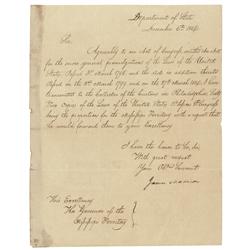 Department of State
December 6th 1804
Sir,
Agreeably to an Act of Congress entitled An Act
for the more general promulgation of the Laws of the United
States, passed 3d March 1795 and the acts in addition thereto
passed on the 2d March 1799 and on the 27th March 1804, I have
transmitted to the collector of the customs in Philadelphia
Copies of the Laws of the United States
being the proportion for the Mississippi Territory with a request that
he would forward them to your Excellency
I have the honor to be, Sir,
With great respect
Your Obt Servant
James Madison
His Excellency
The Governor of the
Mississippi Territory